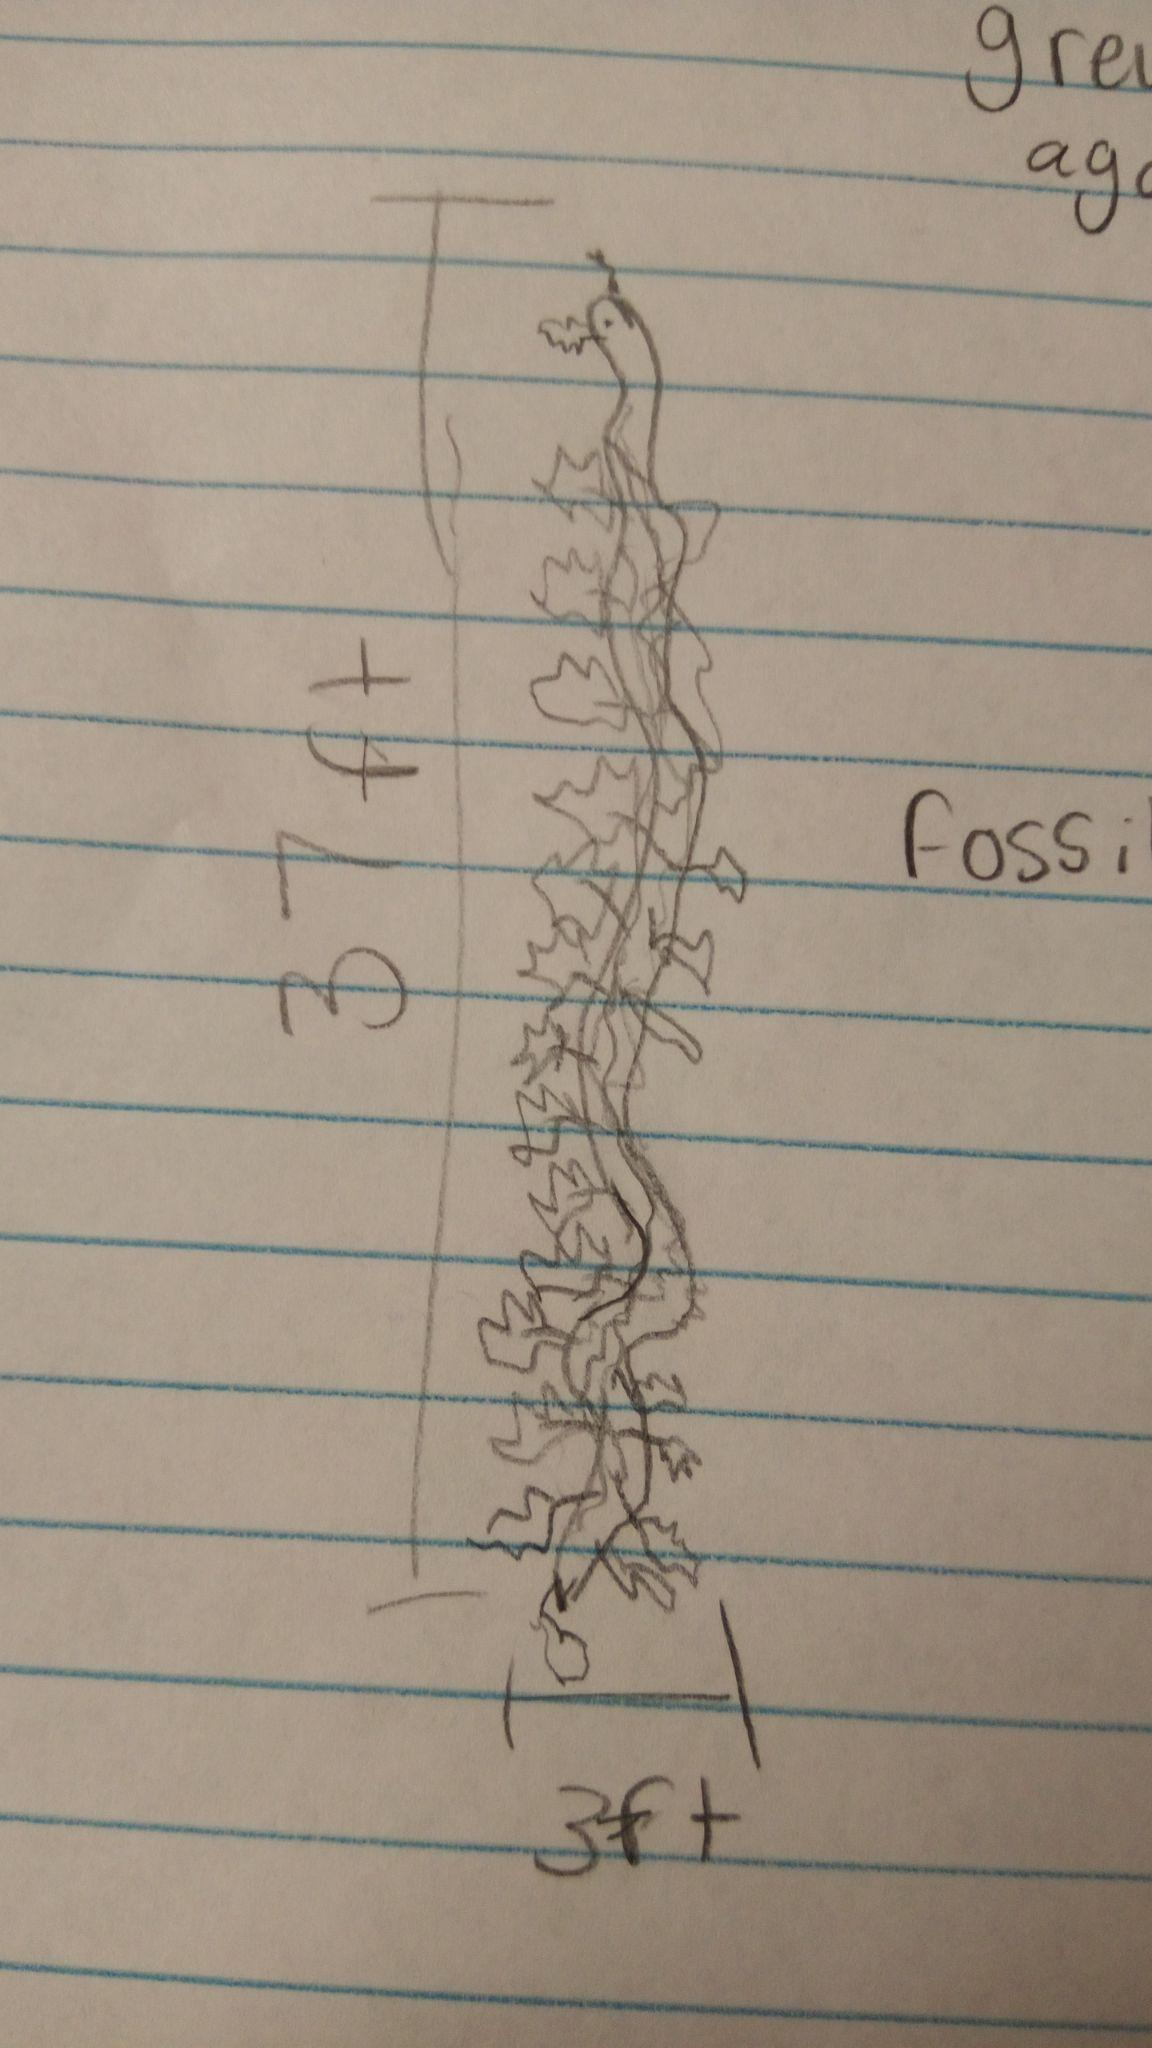 grew
ago
37 ft
Fossil
3ft